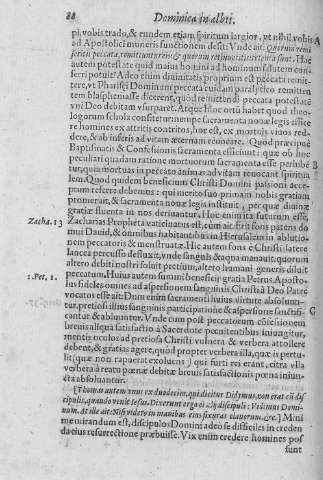 88 Dominica in albis.
pi, vobis trado, & eundem etiam spiritum largior, vt nihil vobis A
ad Apostolici muneris functionem desit: Vnde ait: Quorum remi
seritis peccata, remittuntur eis: & quorum retinueritis retenta sunt. Hac
autem potestate quid maius homini ad hominum salutem con-
ferri potuit? Adeo enim diuinitatis proprium est peccati remit-
tere, vt Pharisei Domini peccata cuidam paralytico remitten
tem blasphemasse dicerent, quod remittendi peccata potestatem
vni Deo debitam vsurparet. Atque hinc ortū habet quod theo-
logorum schola constituit: nimirum sacramenta nouæ legis efficere
homines ex attritis contritos, hoc est, ex mortuis viuos red-
dere, & ab inferis ad vitam æternam reuocare. Quod præcipuè
Baptismatis & Confessionis sacramenta efficiunt: quæ ob hoc
peculiari quadam ratione mortuorum sacramenta esse perhibē B
tur, quia mortuas in peccato animas ad vitam reuocant spiritua
lem. Quod quidem beneficium Christi Domini passioni acce-
ptum referre debemus: qui merito suo primam nobis gratiam
promeruit, & sacramenta nouæ legis instituit, per quæ diuinæ
gratiæ fluenta in nos deriuantur. Hoc enim ita futurum esse,
Zacha. 13 Zacharias Propheta vaticinatus est, cum ait: Erit fons patens do
mui Dauid, & omnibus habitantibus in Hierusalem in ablutio-
nem peccatoris & menstruatæ. Hic autem fons è Christi latere
lancea percusso defluxit, vnde sanguis & aqua manauit, quorum
altero debiti nostri soluit pretium, altero humani generis diluit
1. Pet. 1. peccatum. Huius autem summi beneficij gratia Petrus Aposto-
lus fideles omnes ad aspersionem sanguinis Christi à Deo Patre
vocatos esse ait: Dum enim sacramenti huius virtute absoluun-
tur, pretiosi illius sanguinis participatione & aspersione sanctifi- C
cantur & abluuntur. Vnde cum post peccatorum confessionem
breuis aliqua satisfactio à Sacerdote pœnitentibus iniungitur,
mentis oculos ad pretiosa Christi vulnera & verbera attollere
debent, & gratias agere, quod propter verbera illa, quæ is pertu-
lit (quæ non rapuerat exoluens) qui furti rei erant, citra illa
verbera à reatu pœnæ debitæ breui satisfactionis pœna iniun-
cta absoluantur.
[Thomas autem vnus ex duodecim, qui dicitur Didymus, non erat cū dis
cipulis, quando venit Iesus. Dixerunt ergo ei alij discipuli: Vidimus Domi-
num. At ille ait: Nisi videro in manibus eius fixuras clauorum. &c.] Mini
me mirandum est, discipulos Domini adeo se difficiles in creden
da eius resurrectione præbuisse. Vix enim credere homines pos
sunt